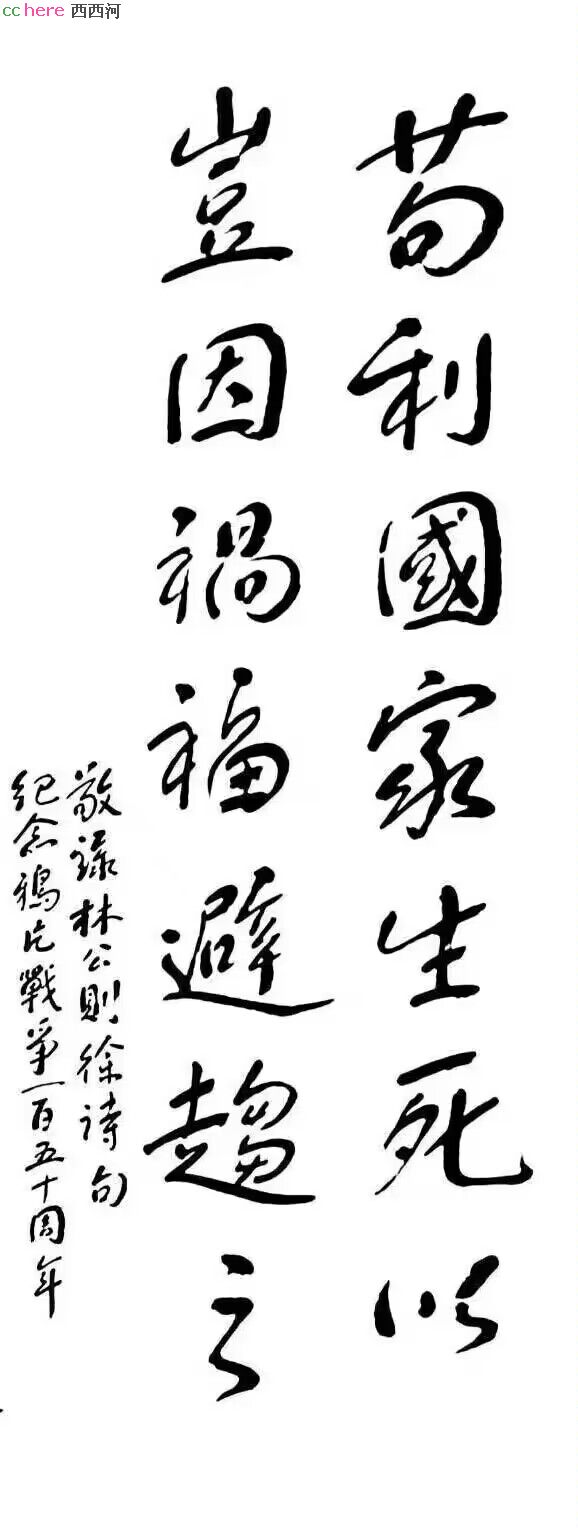 cchere 西西河
苟利國家生死以
豈因禍福避趨之
敬録林公則徐詩句
紀念鴉片戰爭一百五十周年